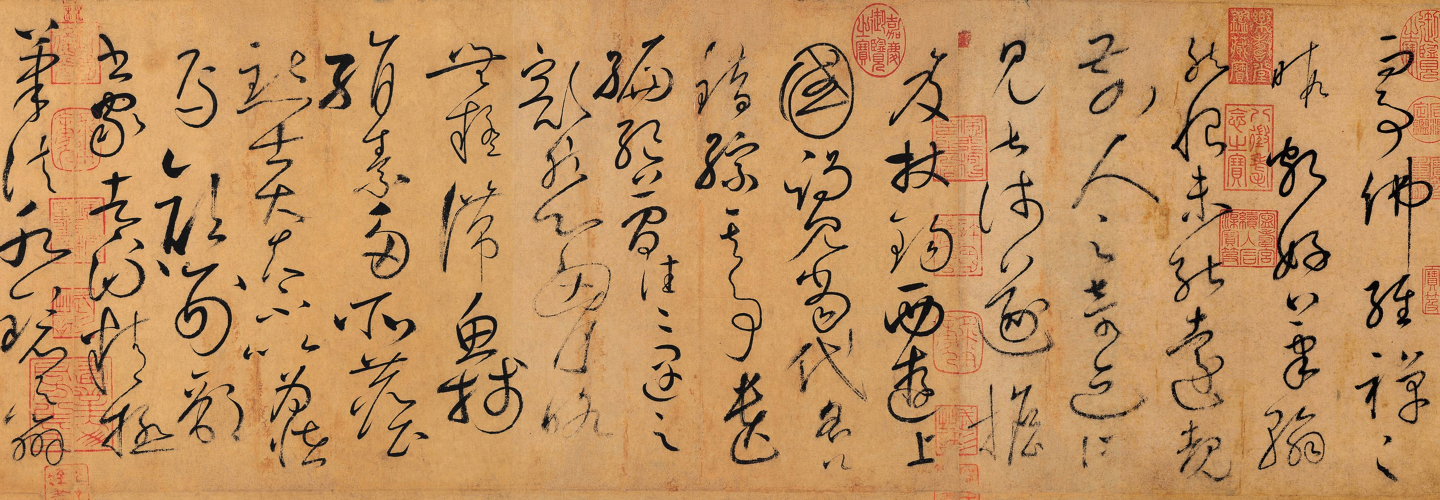 事佛經禪之
暇頗好筆翰
然恨未能遠覩
前人之奇迹所
見甚淺遂擔
笈杖錫西遊上
國謁見當代名公
錯綜其事遺
編絕簡往往遇之
豁然心胸略
無疑滯魚牋
絹素多所塵
點士大夫不以為怪
焉顏刑部
書家者流精極
筆法水鏡之辨